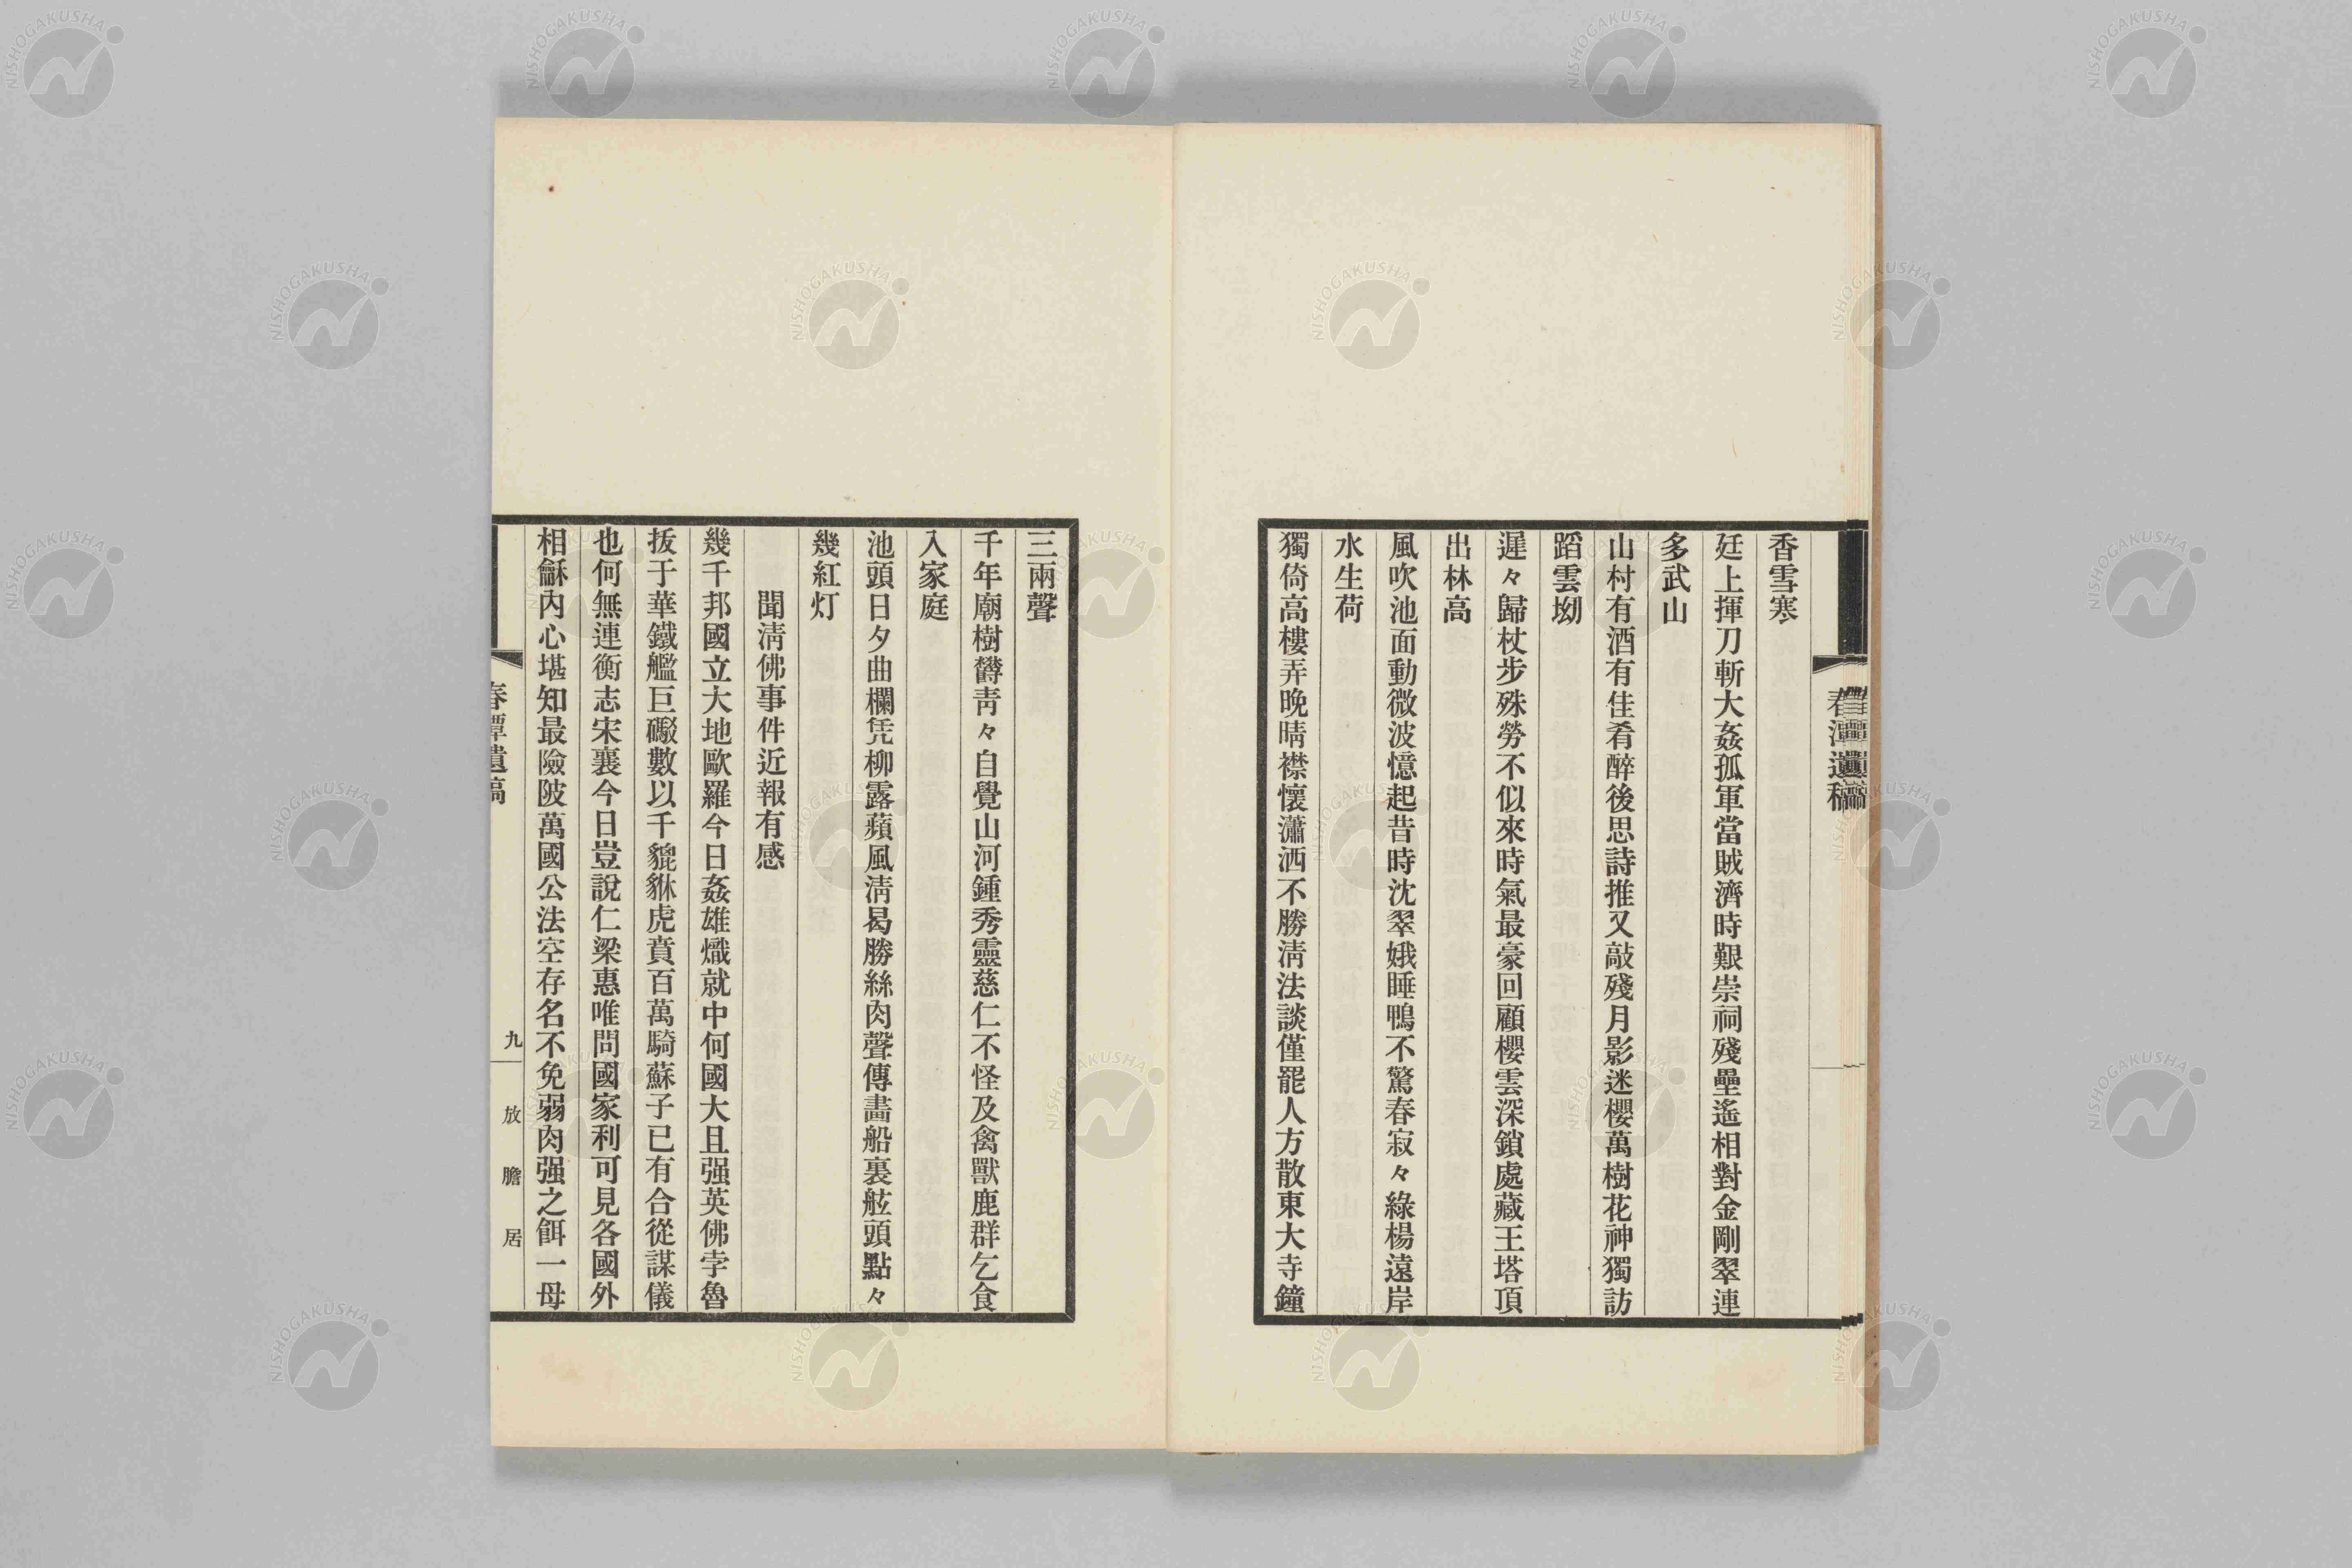 春潭遺稿
香雪寒
廷上揮刀斬大姦孤軍當賊濟時艱崇祠殘壘遙相對金剛翠連
多武山
山村有酒有佳肴醉後思詩推又敲殘月影迷櫻萬樹花神獨訪
蹈雲坳
遲々歸杖步殊勞不似來時氣最豪回顧櫻雲深鎖處藏王塔頂
出林高
風吹池面動微波憶起昔時沈翠娥睡鴨不驚春寂々綠楊遠岸
水生荷
獨倚高樓弄晚晴襟懷瀟洒不勝淸法談僅罷人方散東大寺鐘
三兩聲
千年廟樹欝靑々自覺山河鍾秀靈慈仁不怪及禽獸鹿群乞食
入家庭
池頭日夕曲欄凭柳露蘋風淸曷勝絲肉聲傳畵船裏舷頭點々
幾紅灯
聞淸佛事件近報有感
幾千邦國立大地歐羅今日姦雄熾就中何國大且强英佛孛魯
拔于華鐵艦巨礮數以千貔貅虎賁百萬騎蘇子已有合從謀儀
也何無連衡志宋襄今日豈說仁梁惠唯問國家利可見各國外
相龢內心堪知最險陂萬國公法空存名不免弱肉强之餌一母
春潭遺稿
九
放膽居
NISHOGAKUSHA